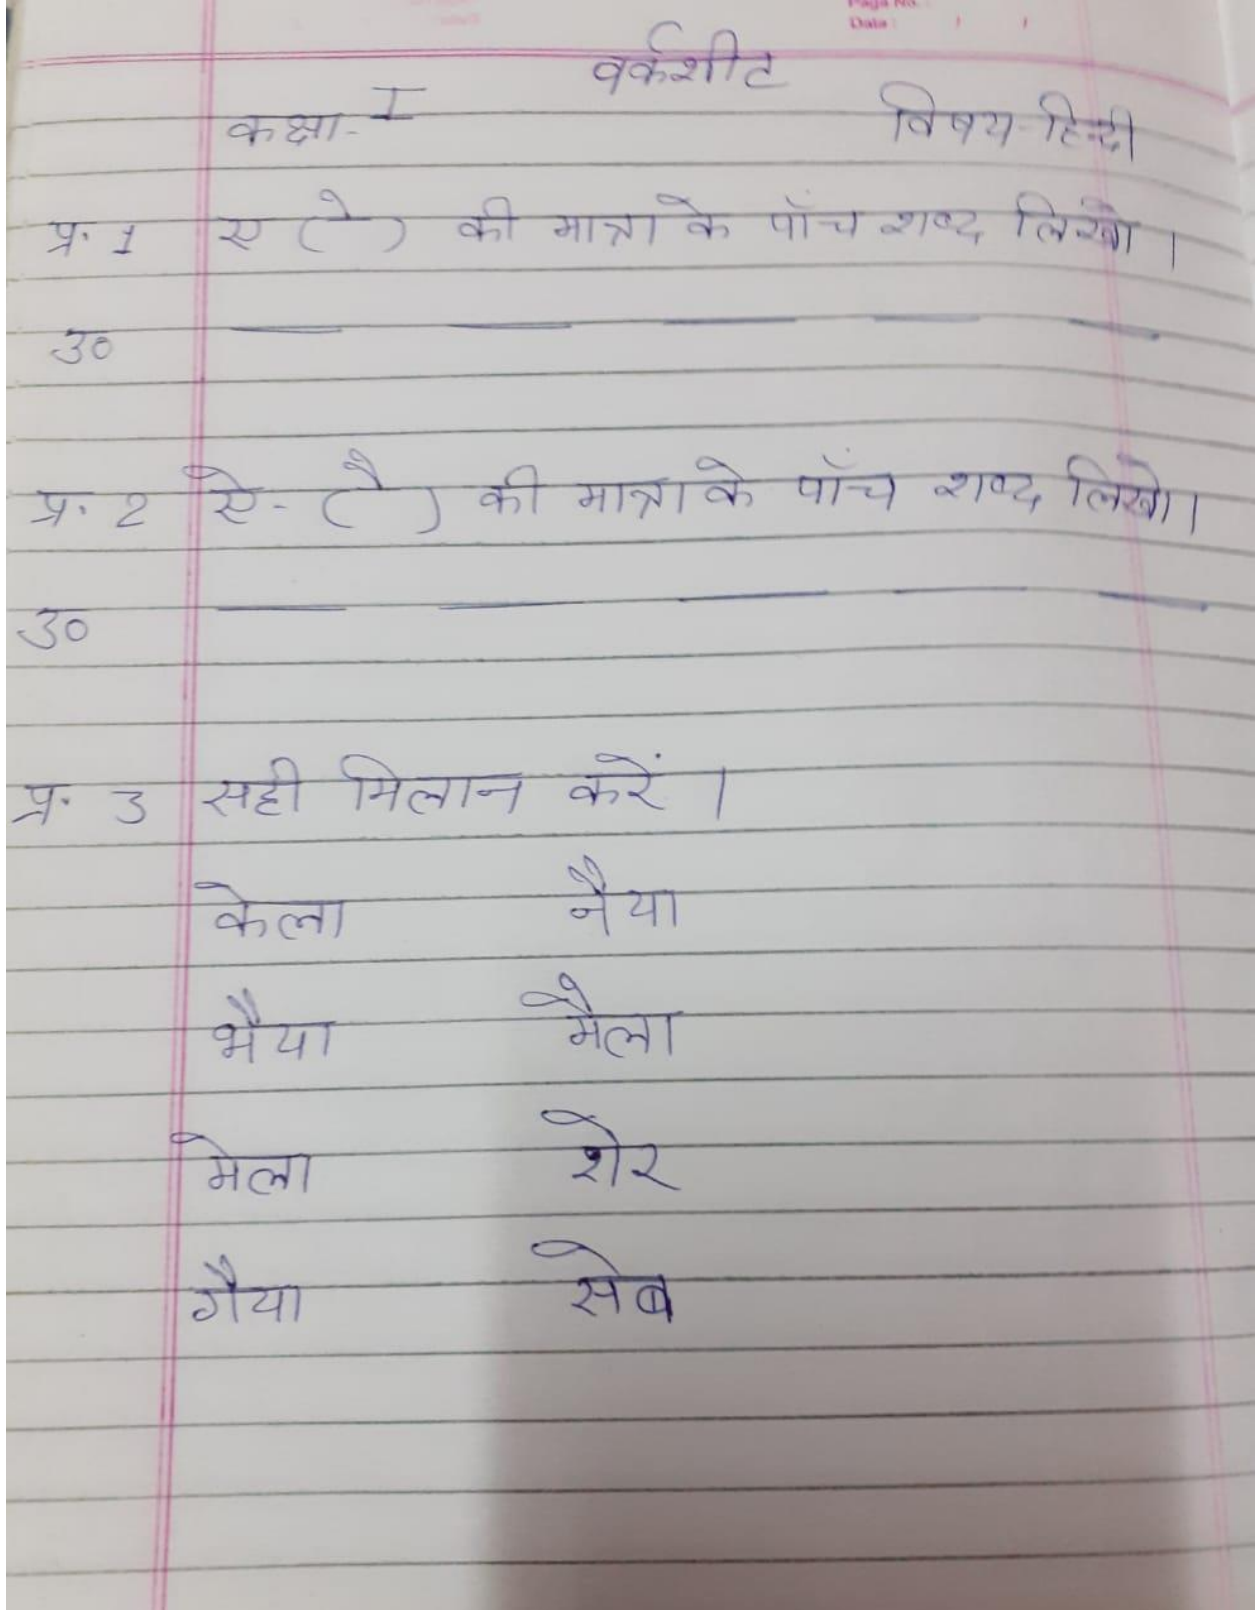 Page No.
Date : / /
वर्कशीट
कक्षा - I विषय - हिन्दी
प्र. 1 ए ( े ) की मात्रा के पाँच शब्द लिखो ।
उ०
प्र. 2 ऐ - ( ै ) की मात्रा के पाँच शब्द लिखो ।
उ०
प्र. 3 सही मिलान करें ।
केला नैया
भैया मैला
मेला शेर
गैया सेब